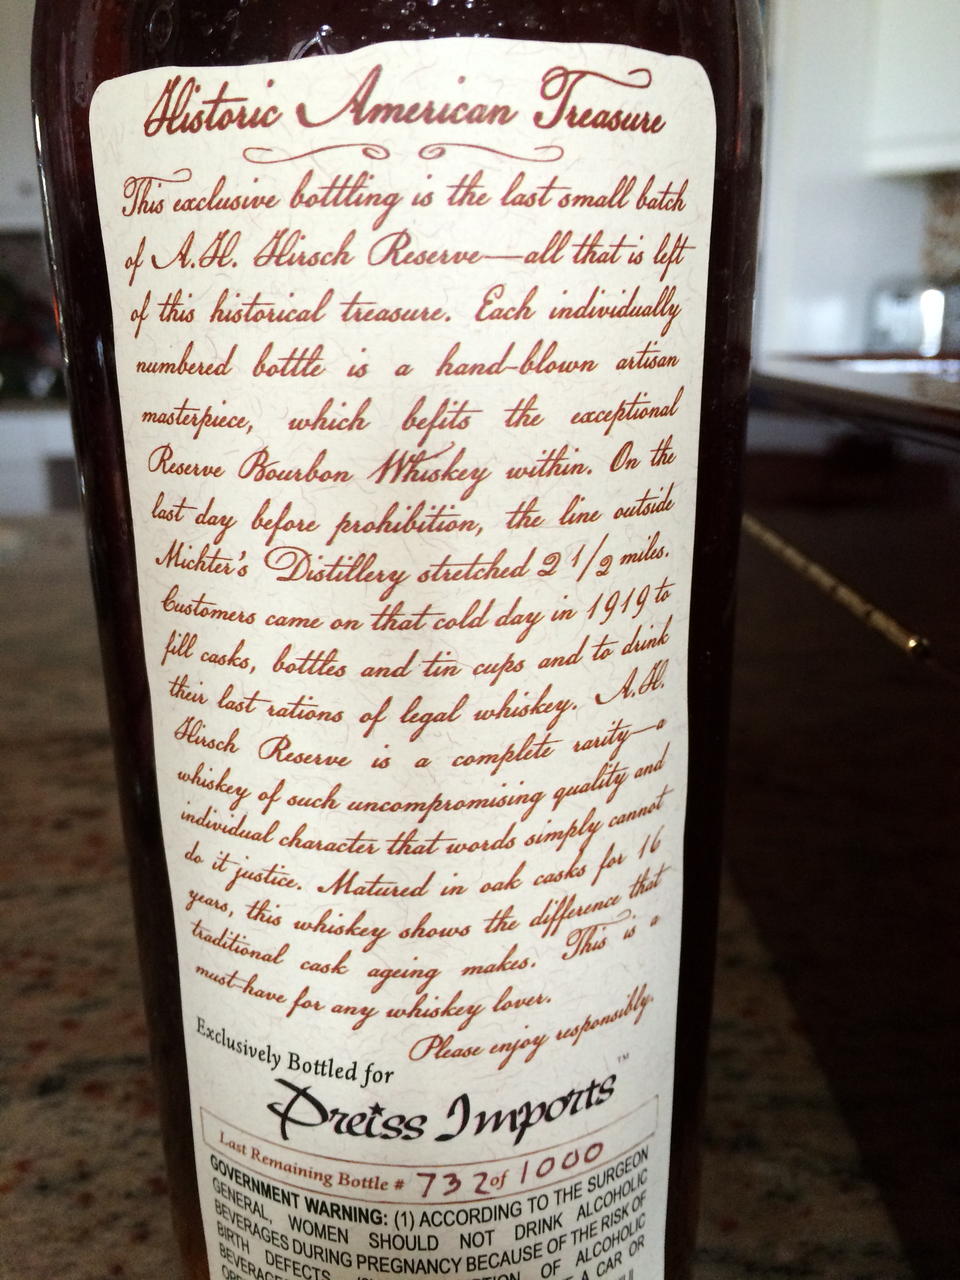 Historic American Treasure
This exclusive bottling is the last small batch
of A.H. Hirsch Reserve—all that is left
of this historical treasure. Each individually
numbered bottle is a hand-blown artisan
masterpiece, which befits the exceptional
Reserve Bourbon Whiskey within. On the
last day before prohibition, the line outside
Michter's Distillery stretched 2 1/2 miles.
Customers came on that cold day in 1919 to
fill casks, bottles and tin cups and to drink
their last rations of legal whiskey. A.H.
Hirsch Reserve is a complete rarity—a
whiskey of such uncompromising quality and
individual character that words simply cannot
do it justice. Matured in oak casks for 16
years, this whiskey shows the difference that
traditional cask ageing makes. This is a
must-have for any whiskey lover.
Please enjoy responsibly.
Exclusively Bottled for
Preiss Imports™
Last Remaining Bottle # 732 of 1000
GOVERNMENT WARNING: (1) ACCORDING TO THE SURGEON
GENERAL, WOMEN SHOULD NOT DRINK ALCOHOLIC
BEVERAGES DURING PREGNANCY BECAUSE OF THE RISK OF
BIRTH DEFECTS. OF ALCOHOLIC
A CAR OR